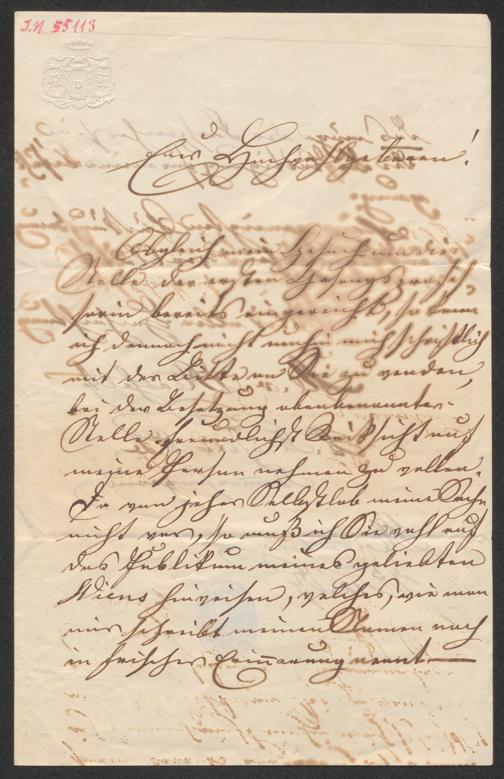 I.N. 55113
Euer Hochwohlgeboren!
Obgleich mein Gesuch um die
Stelle der ersten Gesangsprofes-
sorin bereits eingereicht, so kann
ich dennoch nicht umhin mich schriftlich
mit der Bitte an Sie zu wenden,
bei der Besetzung obenbenannter
Stelle freundlichst Rücksicht auf
meine Person nehmen zu wollen.
Da von jeher Selbstlob meine Sache
nicht war, so muß ich Sie wohl auf
das Publikum meines geliebten
Wiens hinweisen, welches, wie man
mir schreibt meinen Namen noch
in frischer Erinnerung nennt —